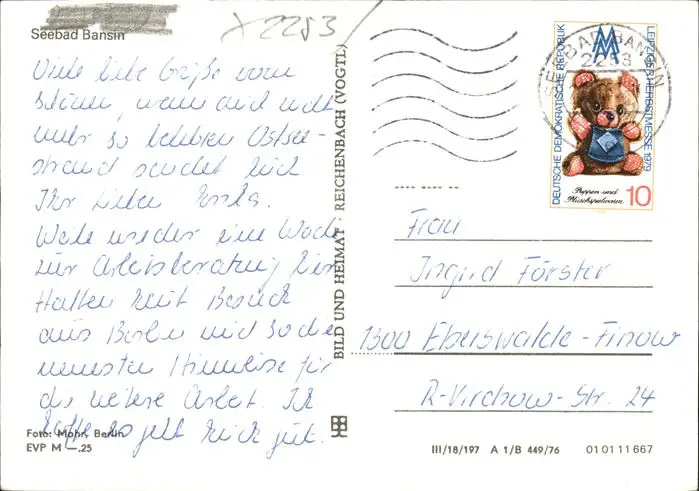 Seebad Bansin
2253
Viele liebe Grüße vom
schönen, wenn auch nicht
mehr so belebten Ostsee-
strand sendet Dich
Ihr Liebe
Weile wieder eine Woche
zur Arbeitsberatung hier
Hatten heut Besuch
aus Berlin und so die
neuesten Hinweise für
die weitere Arbeit. Ich
hoffe es geht Dich gut.
Foto: Mohr, Berlin
EVP M —.25
BILD UND HEIMAT REICHENBACH (VOGTL)
SEEBAD BANSIN
2253
DEUTSCHE DEMOKRATISCHE REPUBLIK
LEIPZIGER HERBSTMESSE 1979
MM
Puppen und
Plüschspielwaren
10
Frau
Ingrid Förster
1300 Eberswalde-Finow
R.-Virchow-Str. 24
III/18/197 A 1/B 449/76 01 01 11 667